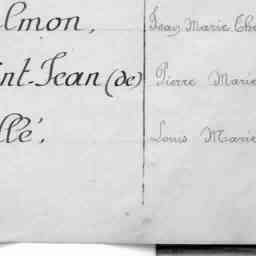 lmon, Jean Marie Che
int-Jean (de) Pierre Marie
llé, Louis Marie